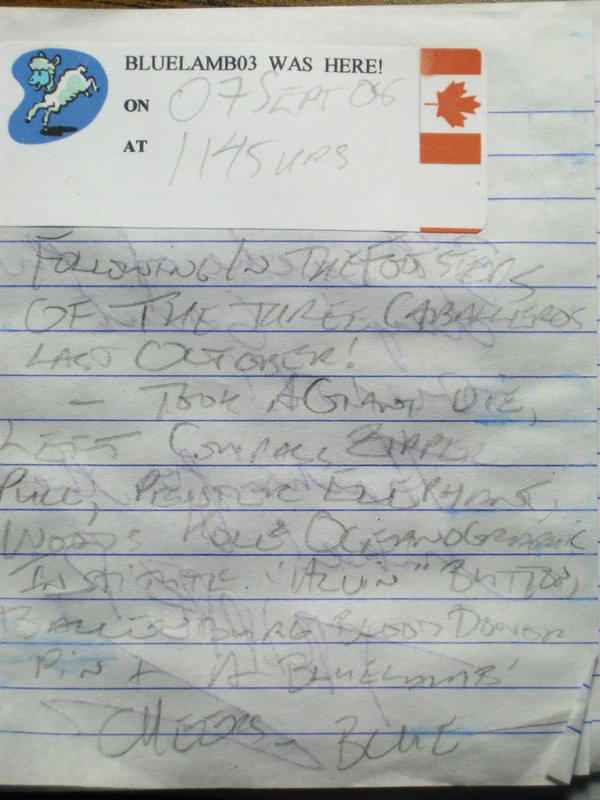 BLUELAMB03 WAS HERE!
ON 07 SEPT 06
AT 1145 HRS
FOLLOWING IN THE FOOTSTEPS
OF THE THREE CABALLEROS
LAST OCTOBER!
- TOOK A GIANT DIE,
LEFT COMPASS ZIPPER
PULL, PEWTER ELEPHANT,
WOODS HOLE OCEANOGRAPHIC
INSTITUTE "ALVIN" BUTTON,
BLOOD DONOR
PIN + 'A BLUELAMB'
CHEERS - BLUE